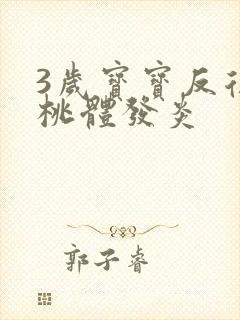 3歲寶寶反復
桃體發炎
郭子睿